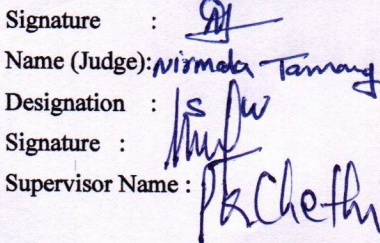 Signature :
Name (Judge): Nirmala Tamang
Designation : S W
Signature :
Supervisor Name : PK Chethri